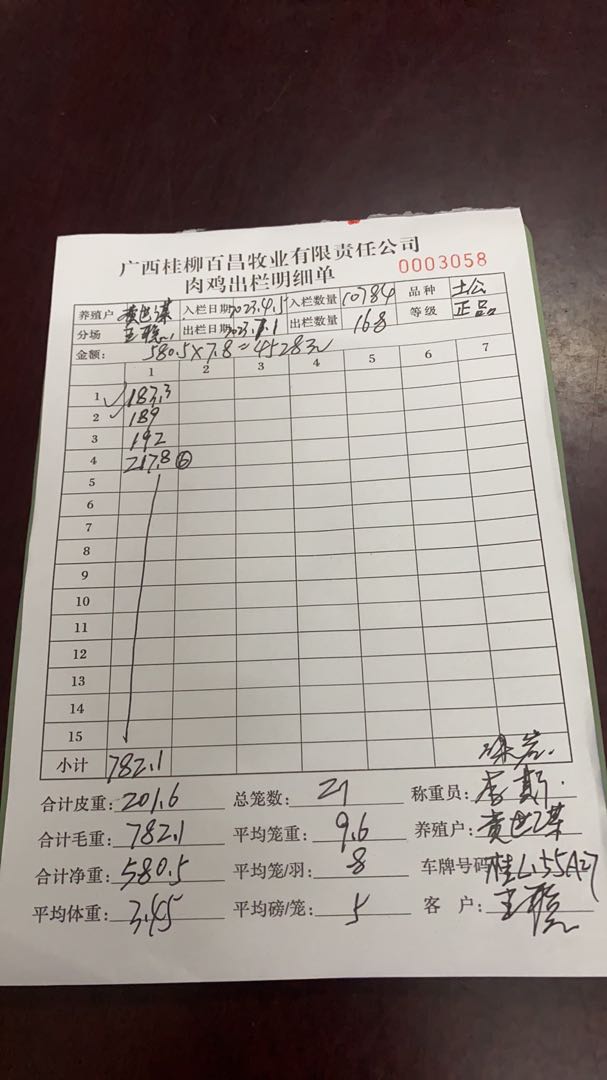 广西桂柳百昌牧业有限责任公司
肉鸡出栏明细单 0003058
养殖户 黄世谋 入栏日期 2023.4.5 入栏数量 10784 品种 土公
分场 出栏日期 2023.7.1 出栏数量 168 等级 正品
金额: 580.5×7.8=4528元
1 2 3 4 5 6 7
1 183.3
2 189
3 192
4 217.8 ⑥
5
6
7
8
9
10
11
12
13
14
15
小计 782.1
合计皮重: 201.6 总笼数: 21 称重员:
合计毛重: 782.1 平均笼重: 9.6 养殖户: 黄世谋
合计净重: 580.5 平均笼/羽: 8 车牌号码: 桂L55A27
平均体重: 3.45 平均磅/笼: 5 客户: